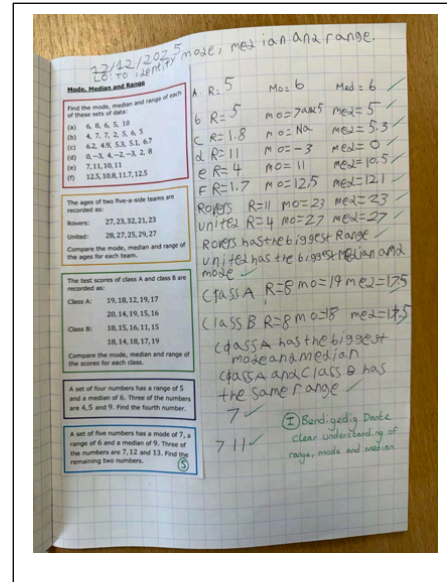 12/12/2025
LO: TO identify mode, median and range.
Mode, Median and Range
Find the mode, median and range of each
of these sets of data:
(a) 6, 8, 6, 5, 10
(b) 4, 7, 7, 2, 5, 6, 5
(c) 6.2, 4.9, 5.3, 5.1, 6.7
(d) 0, -3, 4, -2, -3, 2, 8
(e) 7, 11, 10, 11
(f) 12.5, 10.8, 11.7, 12.5
The ages of two five-a-side teams are
recorded as:
Rovers: 27, 23, 32, 21, 23
United: 28, 27, 25, 29, 27
Compare the mode, median and range of
the ages for each team.
The test scores of class A and class B are
recorded as:
Class A: 19, 18, 12, 19, 17
20, 14, 19, 15, 16
Class B: 18, 15, 16, 11, 15
18, 14, 18, 17, 19
Compare the mode, median and range of
the scores for each class.
A set of four numbers has a range of 5
and a median of 6. Three of the numbers
are 4, 5 and 9. Find the fourth number.
A set of five numbers has a mode of 7, a
range of 6 and a median of 9. Three of
the numbers are 7, 12 and 13. Find the
remaining two numbers.
S
A R=5 Mo=6 Med=6
b R=5 mo=7and5 med=5
C R=1.8 mo=Na med=5.3
d R=11 mo=-3 med=0
e R=4 mo=11 med=10.5
F R=1.7 mo=12.5 med=12.1
Rovers R=11 mo=23 med=23
United R=4 mo=27 med=27
Rovers has the biggest Range
United has the biggest Median and
mode
Class A R=8 mo=19 med=17.5
Class B R=8 mo=18 med=
Class A has the biggest
mode and median
Class A and Class B has
the same range
7
7 11
I Bendigedig Dante
Clear understanding of
range, mode and median